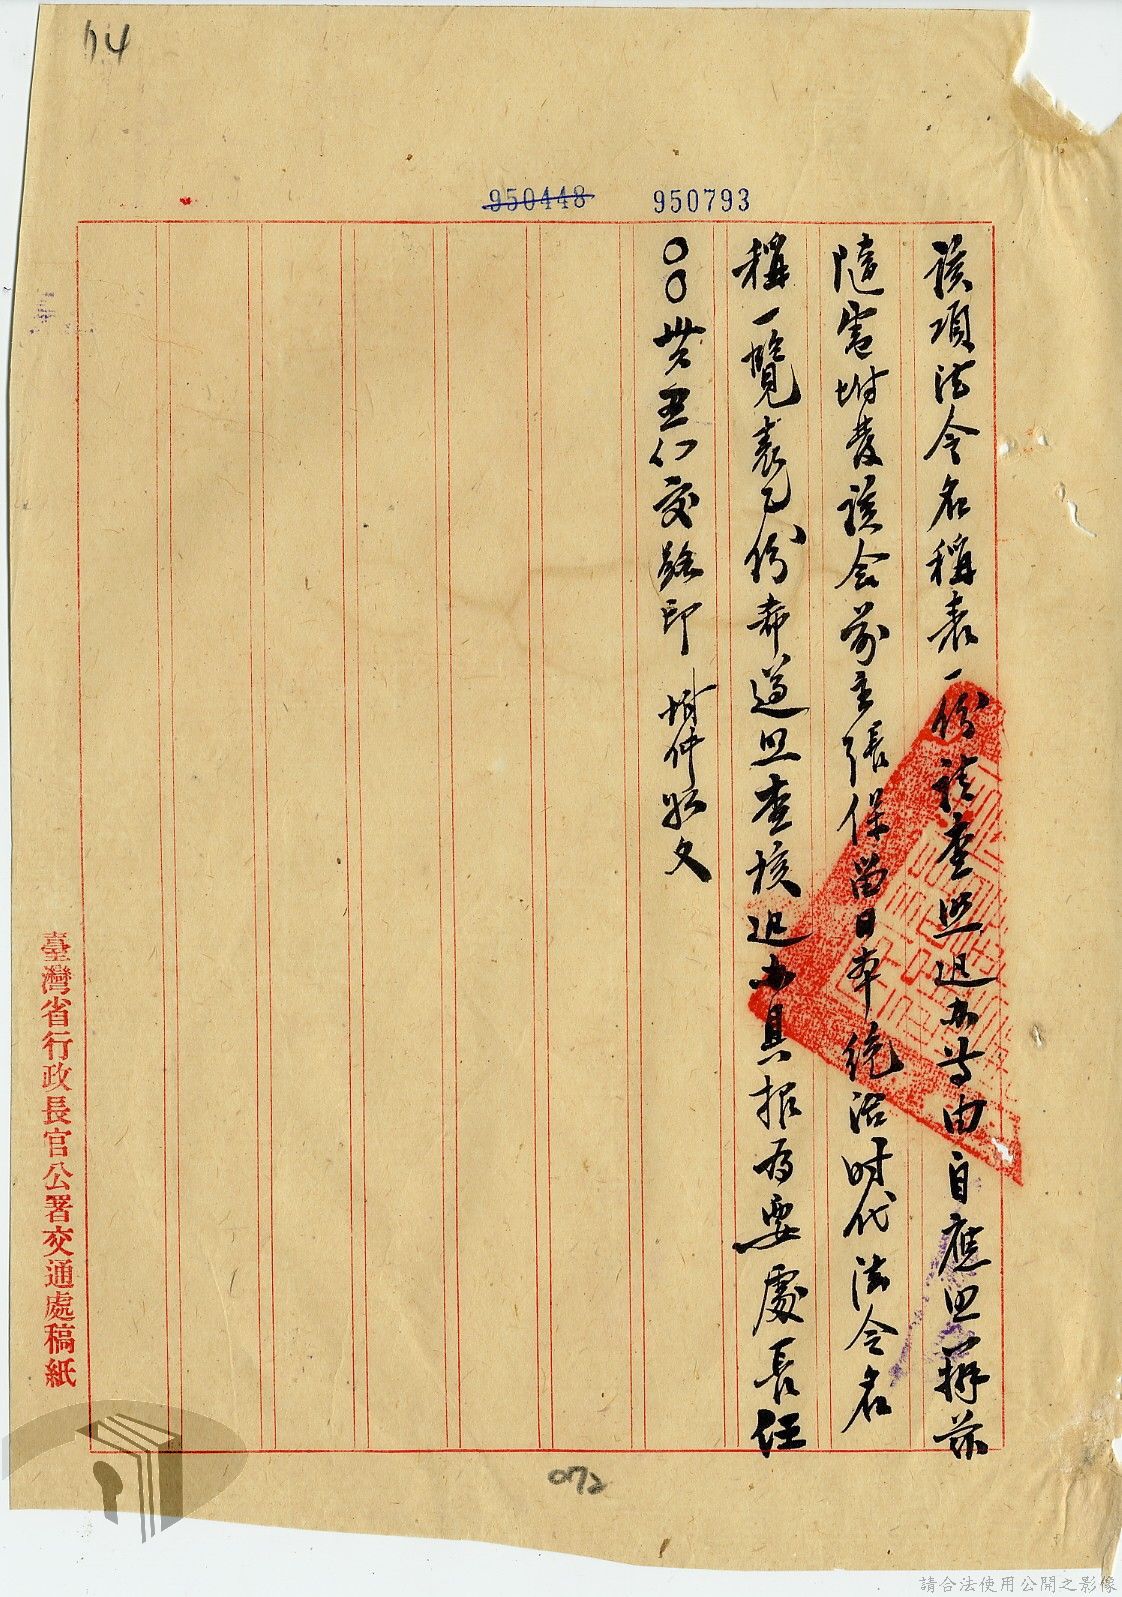 74
950448 950793
該項法令名稱表一份請查照迅办等由自應照辦茲
隨電坿發該会前主張保留日本統治時代法令名
稱一覽表乙份希遵照查核迅办具報為要處長任
〇〇 交路印 坿件如文
臺灣省行政長官公署交通處稿紙
072
請合法使用公開之影像